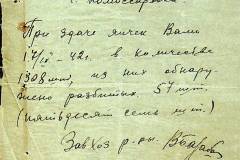 При сдаче яичек Вами
17/IX - 42г. в количестве
1308 шт, из них обнару
жено разбитых 57 шт.
(пятьдесят семь шт.)
Завхоз р-ры